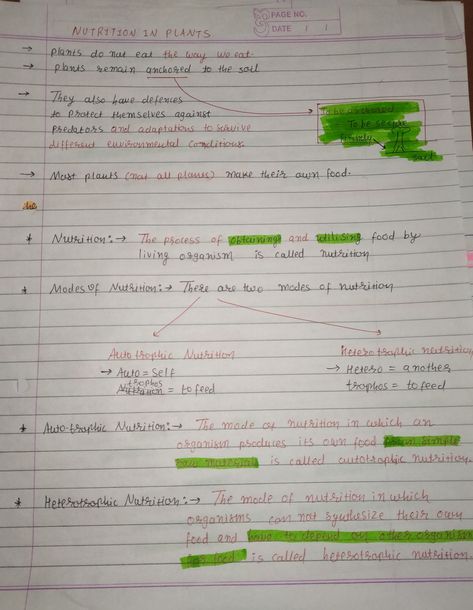 PAGE NO.
DATE / /
NUTRITION IN PLANTS
→ Plants do not eat the way we eat.
→ Plants remain anchored to the soil
→ They also have defences
to protect themselves against
predators and adaptations to survive
different environmental conditions.
To be anchored
To be secure
firmly
soil
→ Most plants (not all plants) make their own food.
the
* Nutrition:→ The process of obtaining and utilising food by
living organism is called nutrition
* Modes of Nutrition:→ There are two modes of nutrition
Autotrophic Nutrition
→ Auto = Self
trophos
Nutrition = to feed
Heterotrophic nutrition
→ Hetero = another
trophos = to feed
* Auto-trophic Nutrition:→ The mode of nutrition in which an
organism produces its own food from simple
raw material is called autotrophic nutrition.
* Heterotrophic Nutrition:→ The mode of nutrition in which
organisms can not synthesize their own
food and have to depend on other organism
for food is called heterotrophic nutrition.